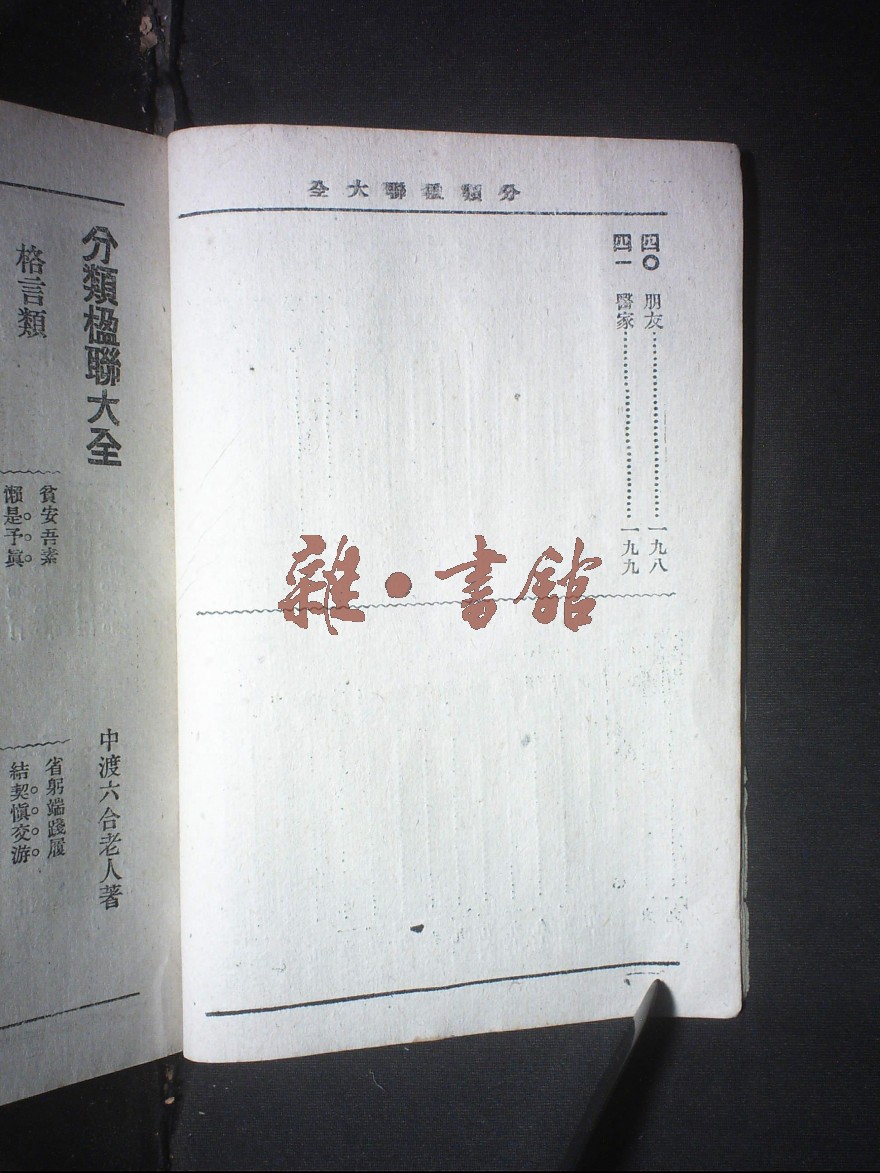 分類楹聯大全
四〇　朋友……………………一九八
四一　醫家……………………一九九
雜·書館
分類楹聯大全
中渡六合老人著
格言類
貧安吾素
懶是予眞
省躬端踐履
結契愼交游